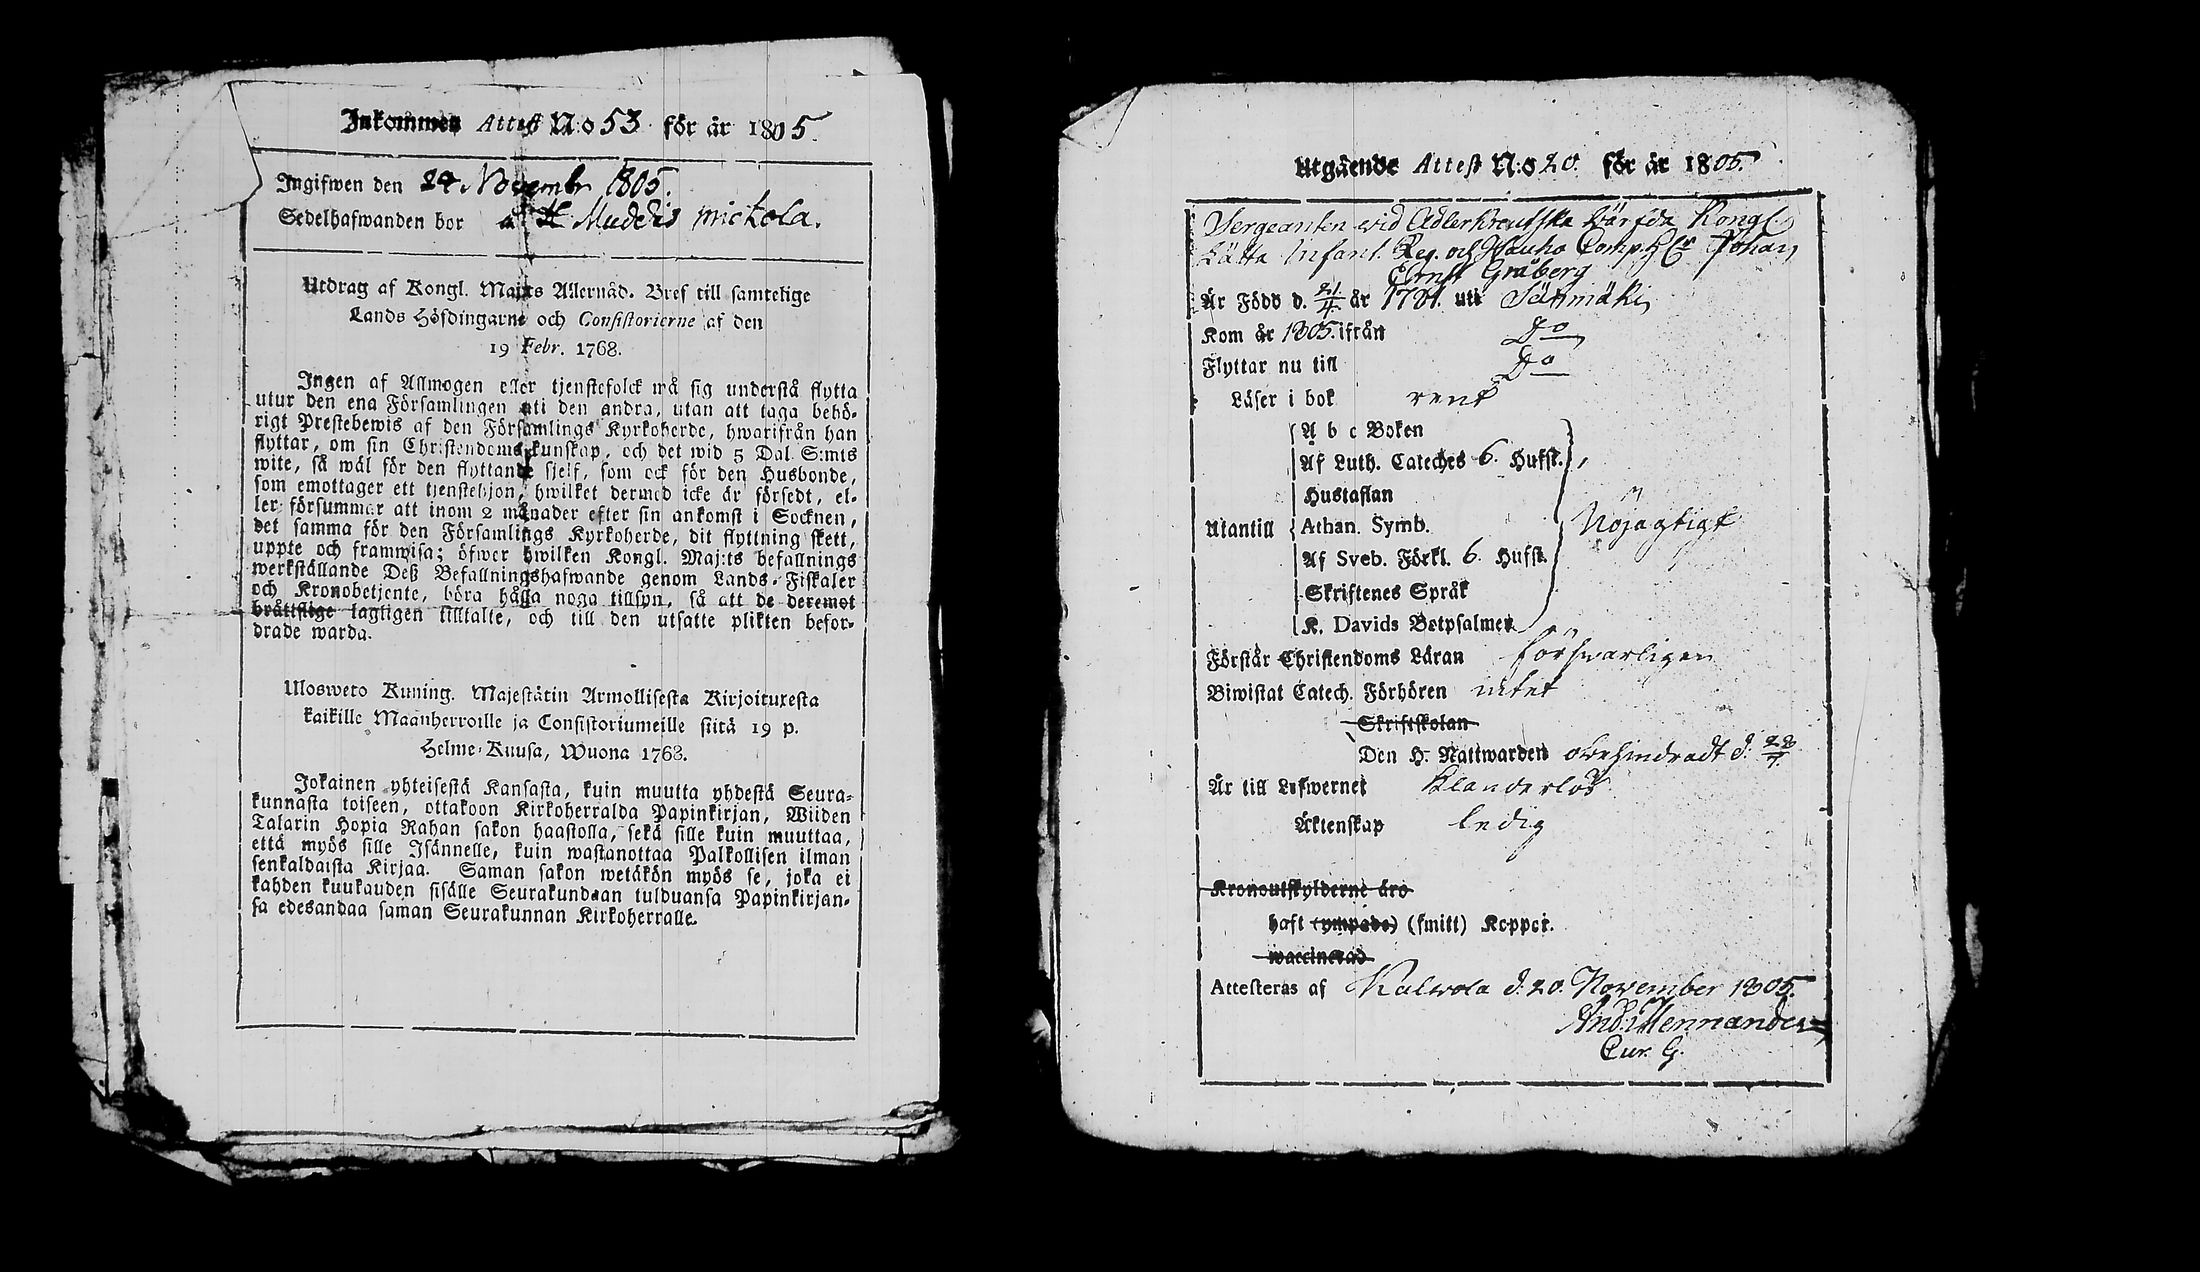 Inkommen Attest N:o 53 för år 1805.
Ingifwen den 24 Novembr 1805.
Sedelhafwanden bor
Utdrag af Kongl. Majts Allernåd. Bref till samtelige
Lands Höfdingarne och Consistorierne af den
19 Febr. 1768.
Ingen af Allmogen eller tjenstefolck må sig understå flytta
utur den ena Församlingen uti den andra, utan att taga behö-
rigt Prestebewis af den Församlings Kyrkoherde, hwarifrån han
flyttar, om sin Christendoms kunskap, och det wid 5 Dal. S:mts
wite, så wäl för den flyttande sjelf, som ock för den Husbonde,
som emottager ett tjenstehjon, hwilket dermed icke är försedt, el-
ler försummar att inom 2 månader efter sin ankomst i Socknen,
det samma för den Församlings Kyrkoherde, dit flyttning skett,
uppte och framwisa; öfwer hwilken Kongl. Maj:ts befallnings
werkställande Deß Befallningshafwande genom Lands-Fiskaler
och Kronobetjente, böra hålla noga tillsyn, så att de deremot
bråttslige lagligen tilltalte, och till den utsatte plikten befor-
drade warda.
Ulosweto Kuning. Majestätin Armollisesta Kirjoituxesta
kaikille Maanherroille ja Consistoriumeille siitä 19 p.
Helme-Kuusa, Wuona 1768.
Jokainen yhteisestä Kansasta, kuin muutta yhdestä Seura-
kunnasta toiseen, ottakoon Kirkoherralda Papinkirjan, Wiiden
Talarin Hopia Rahan sakon haastolla, sekä sille kuin muuttaa,
että myös sille Isännelle, kuin wastanottaa Palkollisen ilman
senkaldaista Kirjaa. Saman sakon wetäkön myös se, joka ei
kahden kuukauden sisälle Seurakundaan tulduansa Papinkirjan-
sa edesandaa saman Seurakunnan Kirkoherralle.
Utgående Attest N:o 20. för år 1805.
Sergeanten wid Adlerkreutska Kongl
Lätta Infant. Reg. och Hauho Comp. Johan
Ernst Gråberg
Är Född d. 21/4 år 1781. uti Säxmäki
Kom år 1805. ifrån Do
Flyttar nu till Do
Läser i bok rent
A b c Boken
Af Luth. Cateches 6. Hufst.
Hustaflan
Utantill Athan. Symb. Nöjagtigt
Af Sveb. Förkl. 6. Hufst.
Skriftenes Språk
K. Davids Botpsalmer
Förstår Christendoms Läran försvarligen
Biwistat Catech. Förhören intet
Skriftskolan
Den H. Nattwarden obehindradt d.
Är till Lefwernet Klanderlös
Äktenskap ledig
Kronoutskylderne äro
haft (ympade) (smitt) Koppor.
waccinerad
Attesteras af Kalwola d. 20. November 1805.
And: Mennander
Cur. G.